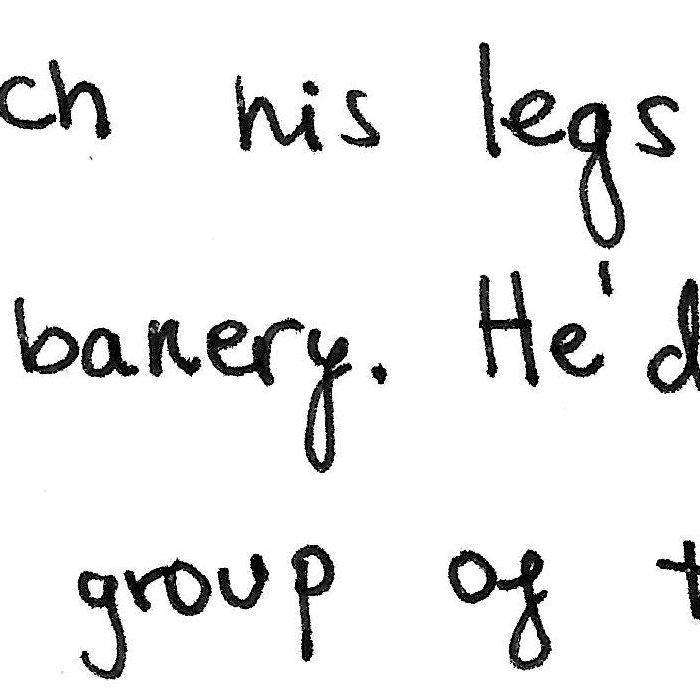 ch his legs
bakery. He'd
group of t